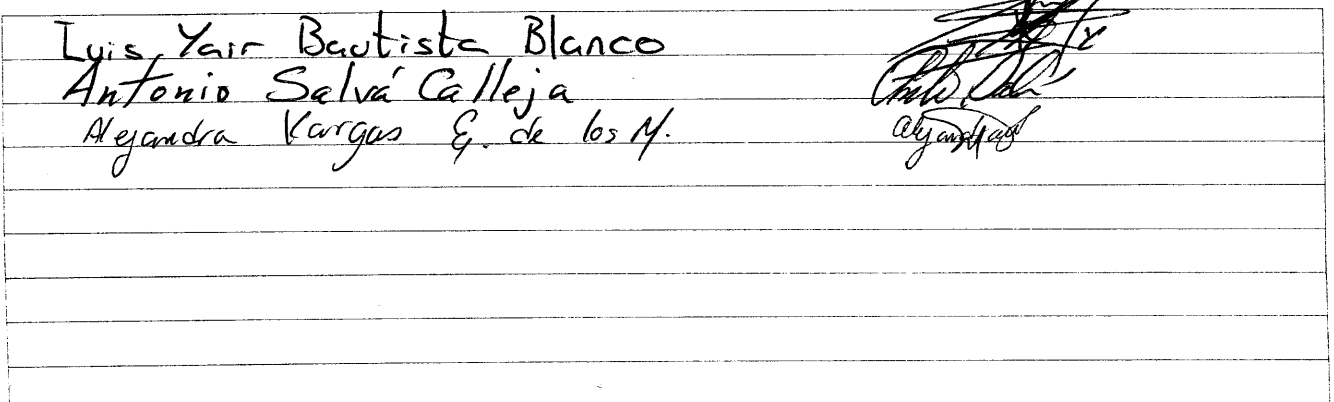 Luis Yair Bautista Blanco
Antonio Salvá Calleja
Alejandra Vargas E. de los M.